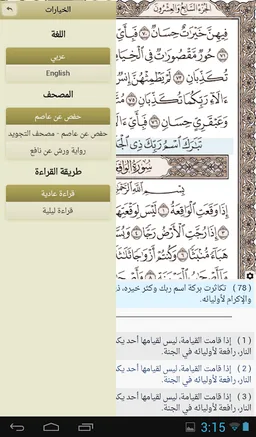 الخيارات
اللغة
عربي
English
المصحف
حفص عن عاصم
حفص عن عاصم - مصحف التجويد
رواية ورش عن نافع
طريقة القراءة
قراءة عادية
قراءة ليلية
الجزء السابع والعشرون
فِيهِنَّ خَيْرَاتٌ حِسَانٌ ٧٠ فَبِأَيِّ
حُورٌ مَقْصُورَاتٌ فِي الْخِيَا
تُكَذِّبَانِ ٧٣ لَمْ يَطْمِثْهُنَّ إِنسٌ
ءَالَاءِ رَبِّكُمَا تُكَذِّبَانِ ٧٥ مُتَّ
وَعَبْقَرِيٍّ حِسَانٍ ٧٦ فَبِأَيِّ ءَا
تَبَارَكَ اسْمُ رَبِّكَ ذِي الْجَ
سورة الواقعة
بِسْمِ اللَّهِ الرَّحْمَٰنِ
إِذَا وَقَعَتِ الْوَاقِعَةُ ١ لَيْسَ لِوَقْعَتِهَا
٣ إِذَا رُجَّتِ الْأَرْضُ رَجًّا ٤ وَبُسَّ
هَبَاءً مُّنبَثًّا ٦ وَكُنتُمْ أَزْوَاجًا ثَلَاثَةً
( 78 ) تكاثرت بركة اسم ربك وكثر خيره، ذ
والإكرام لأوليائه.
( 1 ) إذا قامت القيامة، ليس لقيامها أحد يك
النار، رافعة لأوليائه في الجنة.
( 2 ) إذا قامت القيامة، ليس لقيامها أحد يك
النار، رافعة لأوليائه في الجنة.
( 3 ) إذا قامت القيامة، ليس لقيامها أحد يك
النار، رافعة لأوليائه في الجنة.
3:15